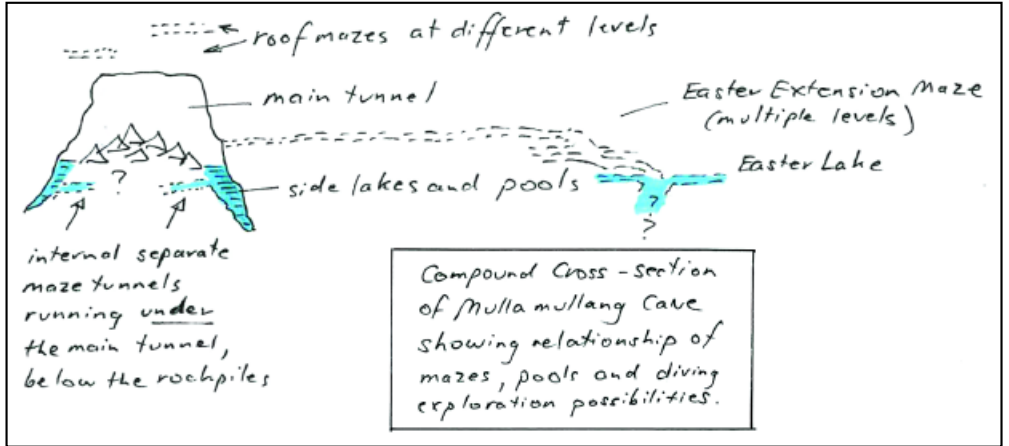 roof mazes at different levels
main tunnel
Easter Extension Maze
(multiple levels)
Easter Lake
?
side lakes and pools
?
?
internal separate
maze tunnels
running under
the main tunnel,
below the rockpiles
Compound Cross-section
of Mullamullang Cave
showing relationship of
mazes, pools and diving
exploration possibilities.